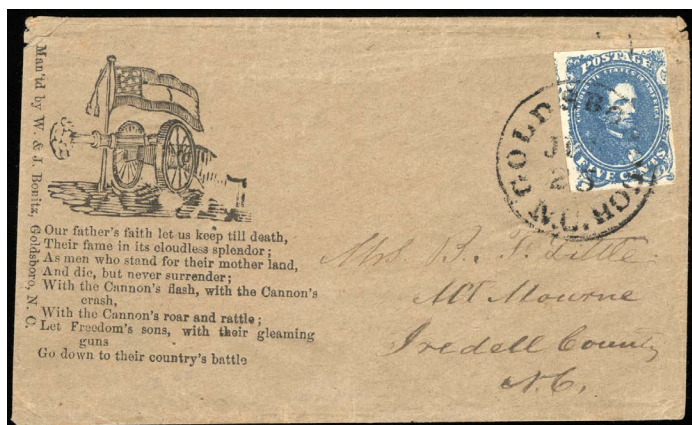 Man'fd by W. & J. Bonitz, Goldsboro, N. C.
Our father's faith let us keep till death,
Their fame in its cloudless splendor;
As men who stand for their mother land,
And die, but never surrender;
With the Cannon's flash, with the Cannon's
crash,
With the Cannon's roar and rattle;
Let Freedom's sons, with their gleaming
guns
Go down to their country's battle
POSTAGE
CONFEDERATE STATES OF AMERICA
FIVE CENTS
GOLDSBOROUGH
N.C.
Mrs. B. F. Little
Mt Mourne
Iredell County
N.C.